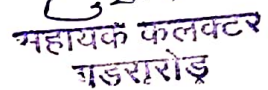 सहायक कलक्टर
गडरारोड़